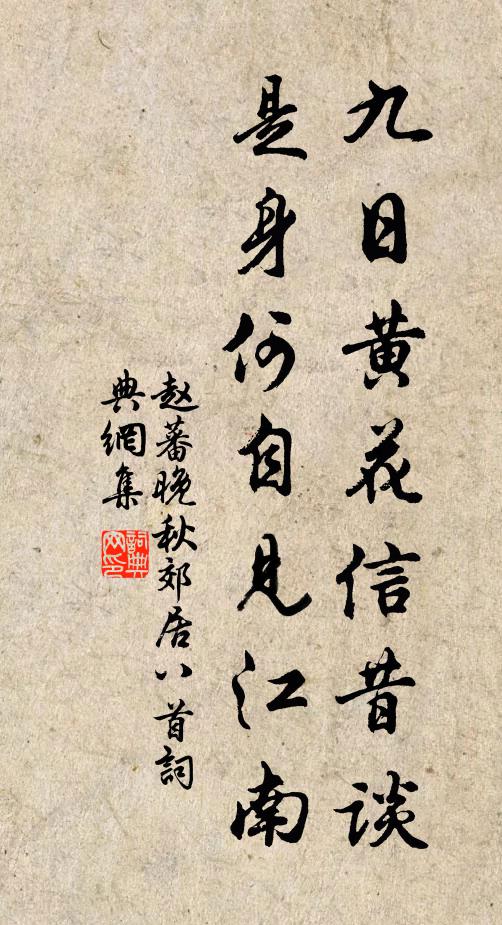 九日黄花信昔谈
是身何自见江南
赵蕃晚秋郊居八首詞
典網集
詞典網印